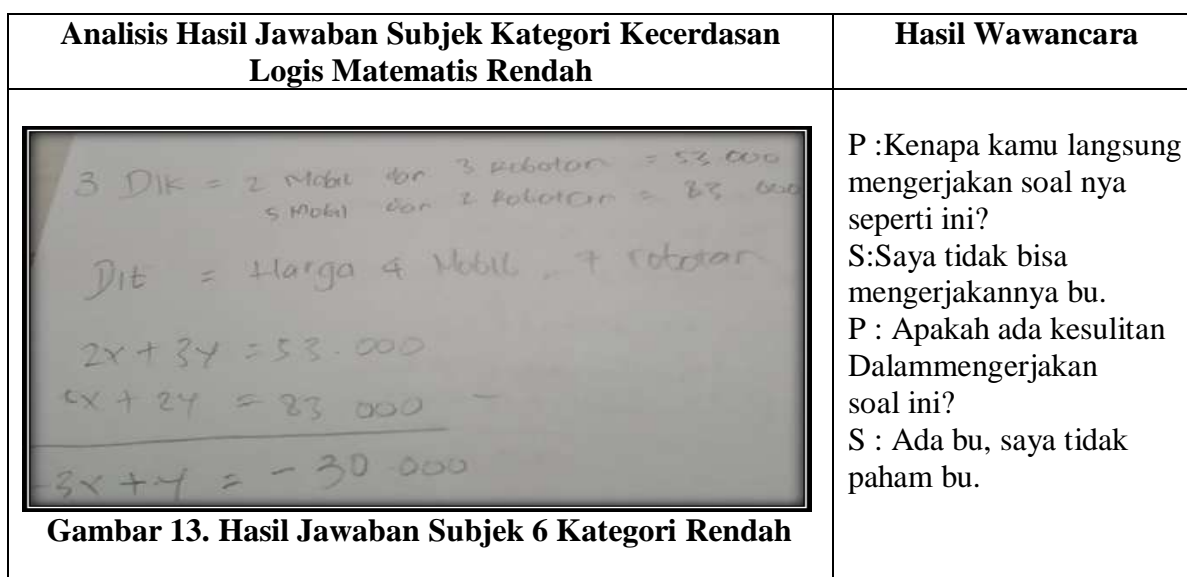 Analisis Hasil Jawaban Subjek Kategori Kecerdasan
Logis Matematis Rendah
Hasil Wawancara
3 DIK = 2 Mobil dan 3 Robotan = 53 000
5 Mobil dan 2 Robotan = 83 000
Dit = Harga 4 Mobil, 7 robotan
2x + 3y = 53.000
5x + 2y = 83 000 -
-3x + y = - 30 000
Gambar 13. Hasil Jawaban Subjek 6 Kategori Rendah
P :Kenapa kamu langsung
mengerjakan soal nya
seperti ini?
S:Saya tidak bisa
mengerjakannya bu.
P : Apakah ada kesulitan
Dalammengerjakan
soal ini?
S : Ada bu, saya tidak
paham bu.